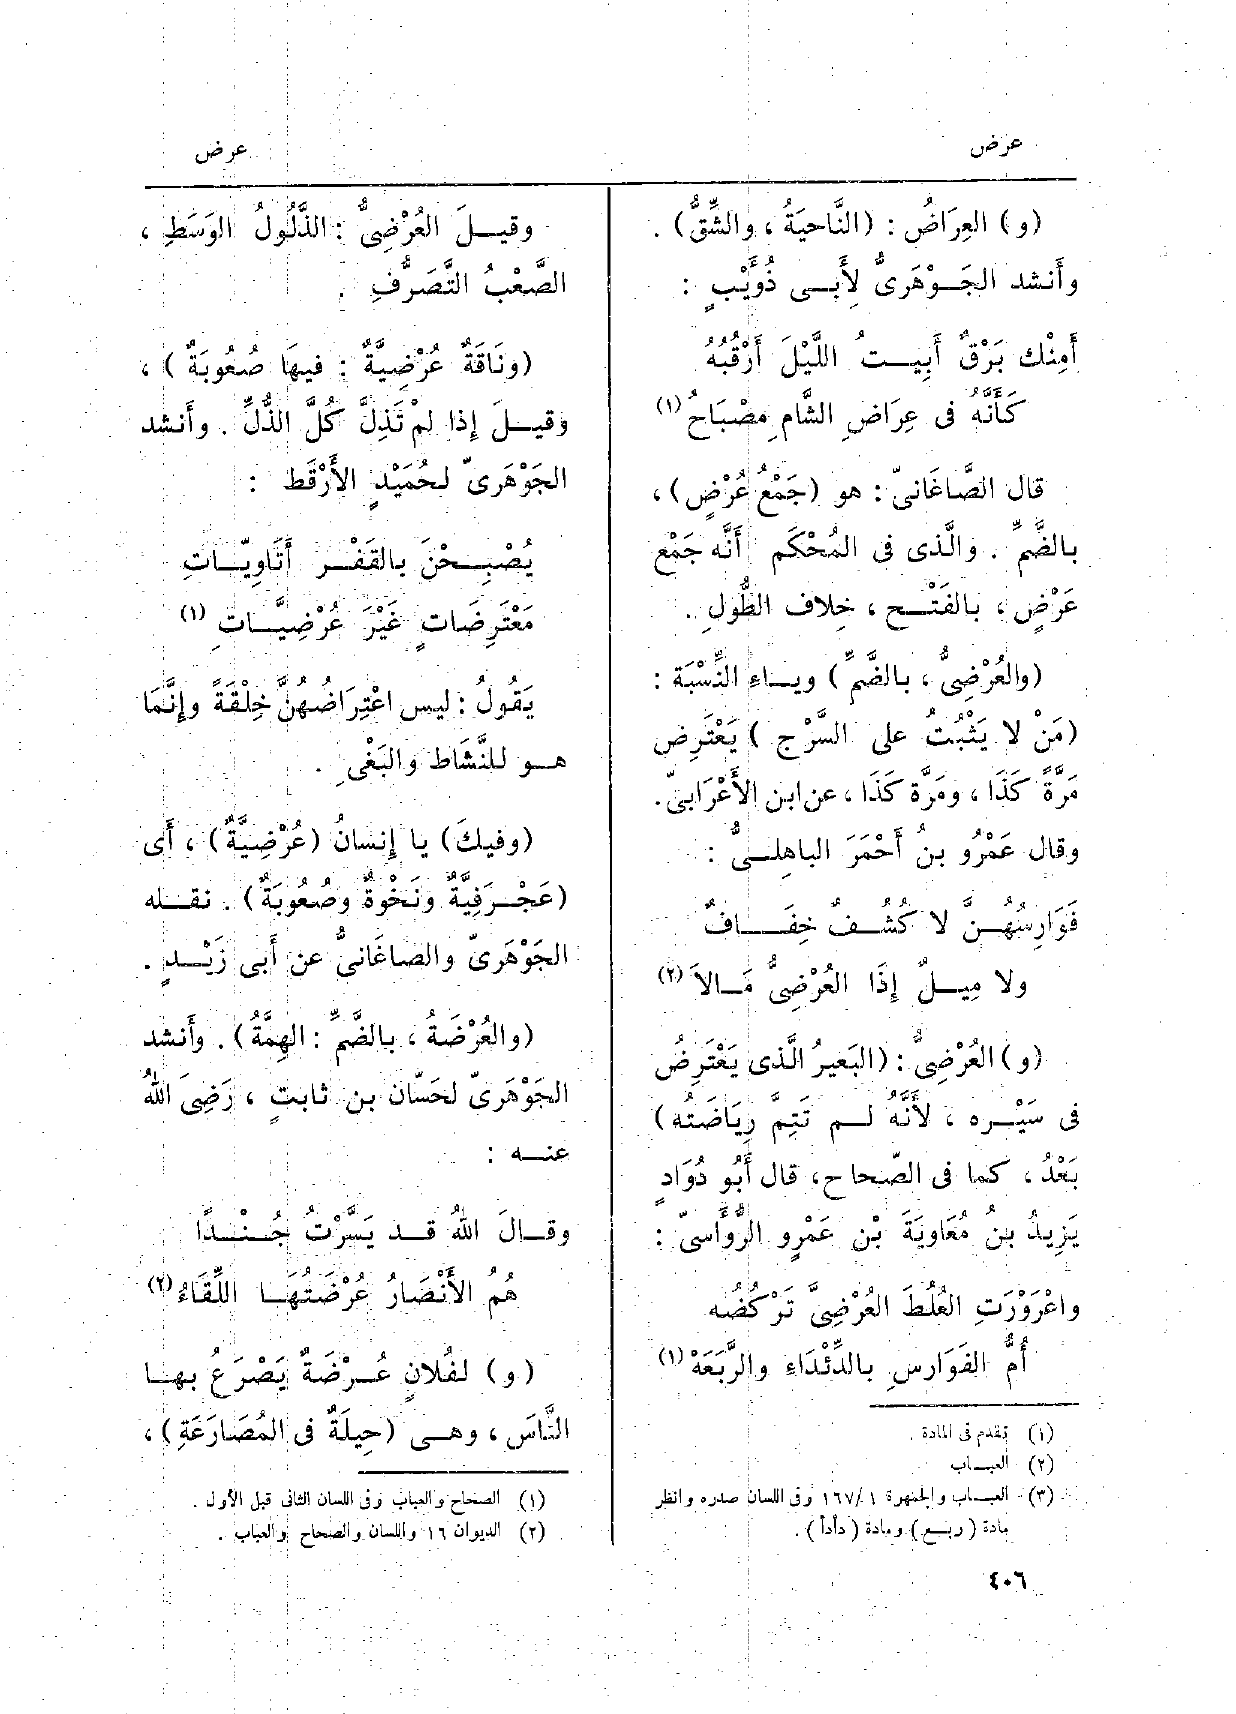 عرض
عرض
(و) العِرَاضُ : (النَّاحِيَةُ ، والشِّقُّ) .
وأَنشد الجَوْهَرىُّ لِأَبى ذُوَيْبٍ :
أَمِنْك بَرْقٌ أَبِيتُ اللَّيْلَ أَرْقُبُهُ
كَأَنَّهُ فى عِرَاضِ الشَّامِ مِصْبَاحُ (١)
قال الصَّاغَانىّ : هو (جَمْعُ عُرْضٍ) ،
بالضَّمِّ . والَّذى فى المُحْكَم أَنَّه جَمْع
عَرْضٍ ، بالفَتْح ، خِلاف الطُّولِ .
(والعُرْضِىُّ ، بالضَّمِّ) وياءِ النِّسْبَة :
(مَنْ لا يَثْبُتُ على السَّرْج) يَعْتَرِض
مَرَّةً كَذَا ، ومَرَّة كَذَا ، عن ابن الأَعْرَابىّ.
وقال عَمْرُو بنُ أَحْمَرَ الباهِلىُّ :
فَوَارِسُهُنَّ لا كُشُفٌ خِفَافٌ
ولا مِيلٌ إِذَا العُرْضِىُّ مَالاَ (٢)
(و) العُرْضِىُّ : (البَعيرُ الَّذى يَعْتَرِضُ
فى سَيْره ، لأَنَّهُ لم تَتِمَّ رِيَاضَتُه)
بَعْدُ ، كما فى الصّحاح، قال أَبُو دُوَادٍ
يَزِيدُ بنُ مُعَاوِيَةَ بْنِ عَمْرٍو الرُّؤَاسىّ :
واعْرَوْرَتِ العُلُطَ العُرْضِىَّ تَرْكُضُه
أُمُّ الفَوَارِسِ بالدِّئْدَاءِ والرَّبَعَهْ (١)
(١) تقدم فى المادة .
(٢) العباب
(٣) العباب والجمهرة ١/١٦٧ وفى اللسان صدره وانظر
مادة (ربع) ومادة (دأدأ) .
وقيلَ العُرْضِىُّ : الذَّلُولُ الوَسَطِ ،
الصَّعْبُ التَّصَرُّفِ .
(ونَاقَةٌ عُرْضِيَّةٌ : فيهَا صُعُوبَةٌ) ،
وقيلَ إِذا لمْ تَذِلَّ كُلَّ الذُّلِّ . وأَنشد
الجَوْهَرىّ لحُمَيْدٍ الأَرْقَط :
يُصْبِحْنَ بالقَفْرِ أَتَاوِيّاتِ
مُعْتَرِضَاتٍ غَيْرَ عُرْضِيَّاتِ (١)
يَقُولُ : ليس اعْتِرَاضُهُنَّ خِلْقَةً وإِنَّمَا
هو للنَّشَاط والبَغْىِ .
(وفيكَ) يا إِنسانُ (عُرْضِيَّةٌ) ، أَى
(عَجْرَفِيَّةٌ ونَخْوَةٌ وصُعُوبَةٌ) . نقله
الجَوْهَرىّ والصاغَانىُّ عن أَبى زَيْدٍ .
(والعُرْضَةُ ، بالضَّمِّ : الهِمَّةُ) . وأَنشد
الجَوْهَرىّ لحَسّان بن ثابتٍ ، رَضِىَ اللهُ
عنه :
وقالَ اللهُ قد يَسَّرْتُ جُنْدًا
هُمُ الأَنْصَارُ عُرْضَتُهَا اللِّقَاءُ (٢)
(و) لفُلانٍ عُرْضَةٌ يَصْرَعُ بها
النَّاسَ ، وهى (حِيلَةٌ فى المُصَارَعَةِ) ،
(١) الصحاح والعباب وفى اللسان الثانى قبل الأول .
(٢) الديوان ١٦ واللسان والصحاح والعباب .
٤٠٦